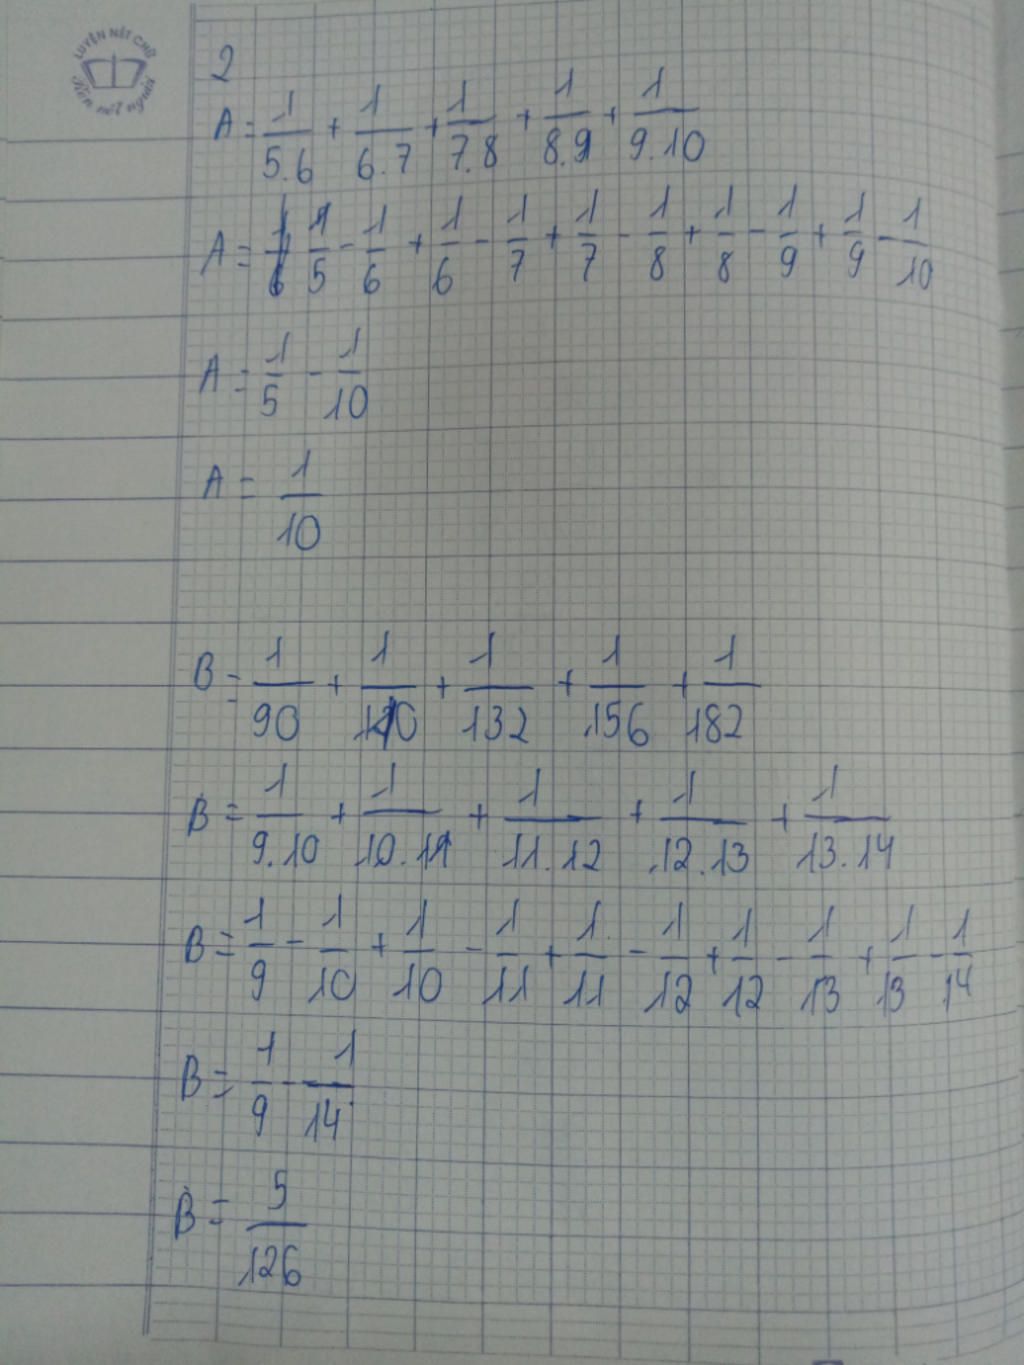 LUYỆN NÉT CHỮ
Rèn nết người
2
A = 1/5.6 + 1/6.7 + 1/7.8 + 1/8.9 + 1/9.10
A = 1/5 - 1/6 + 1/6 - 1/7 + 1/7 - 1/8 + 1/8 - 1/9 + 1/9 - 1/10
A = 1/5 - 1/10
A = 1/10
B = 1/90 + 1/110 + 1/132 + 1/156 + 1/182
B = 1/9.10 + 1/10.11 + 1/11.12 + 1/12.13 + 1/13.14
B = 1/9 - 1/10 + 1/10 - 1/11 + 1/11 - 1/12 + 1/12 - 1/13 + 1/13 - 1/14
B = 1/9 - 1/14
B = 5/126